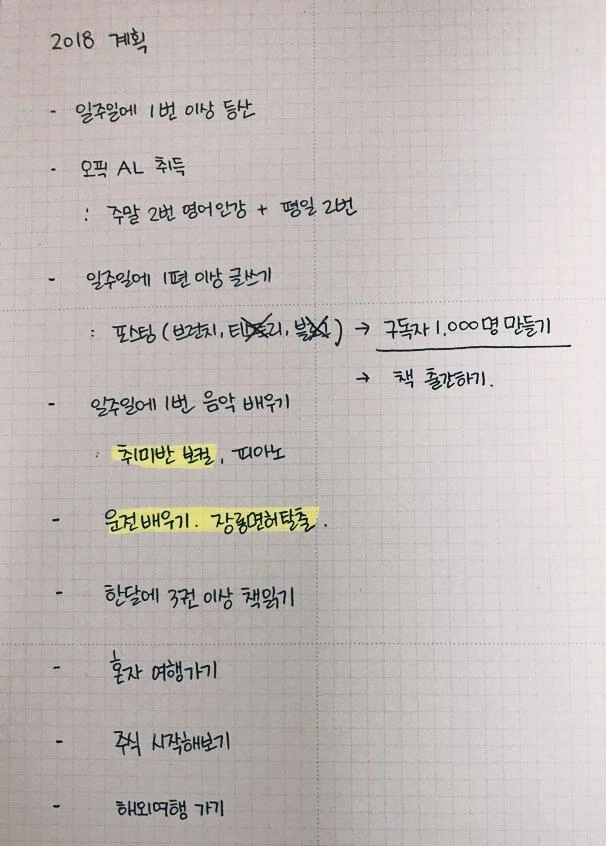 2018 계획
- 일주일에 1번 이상 등산
- 오픽 AL 취득
: 주말 2번 영어인강 + 평일 2번
- 일주일에 1편 이상 글쓰기
: 포스팅 (브런치, 티스토리, 블로그) → 구독자 1,000명 만들기
→ 책 출간하기.
- 일주일에 1번 음악 배우기
: 취미반 보컬, 피아노
- 운전배우기. 장롱면허탈출.
- 한달에 3권 이상 책읽기
- 혼자 여행가기
- 주식 시작해보기
- 해외여행 가기